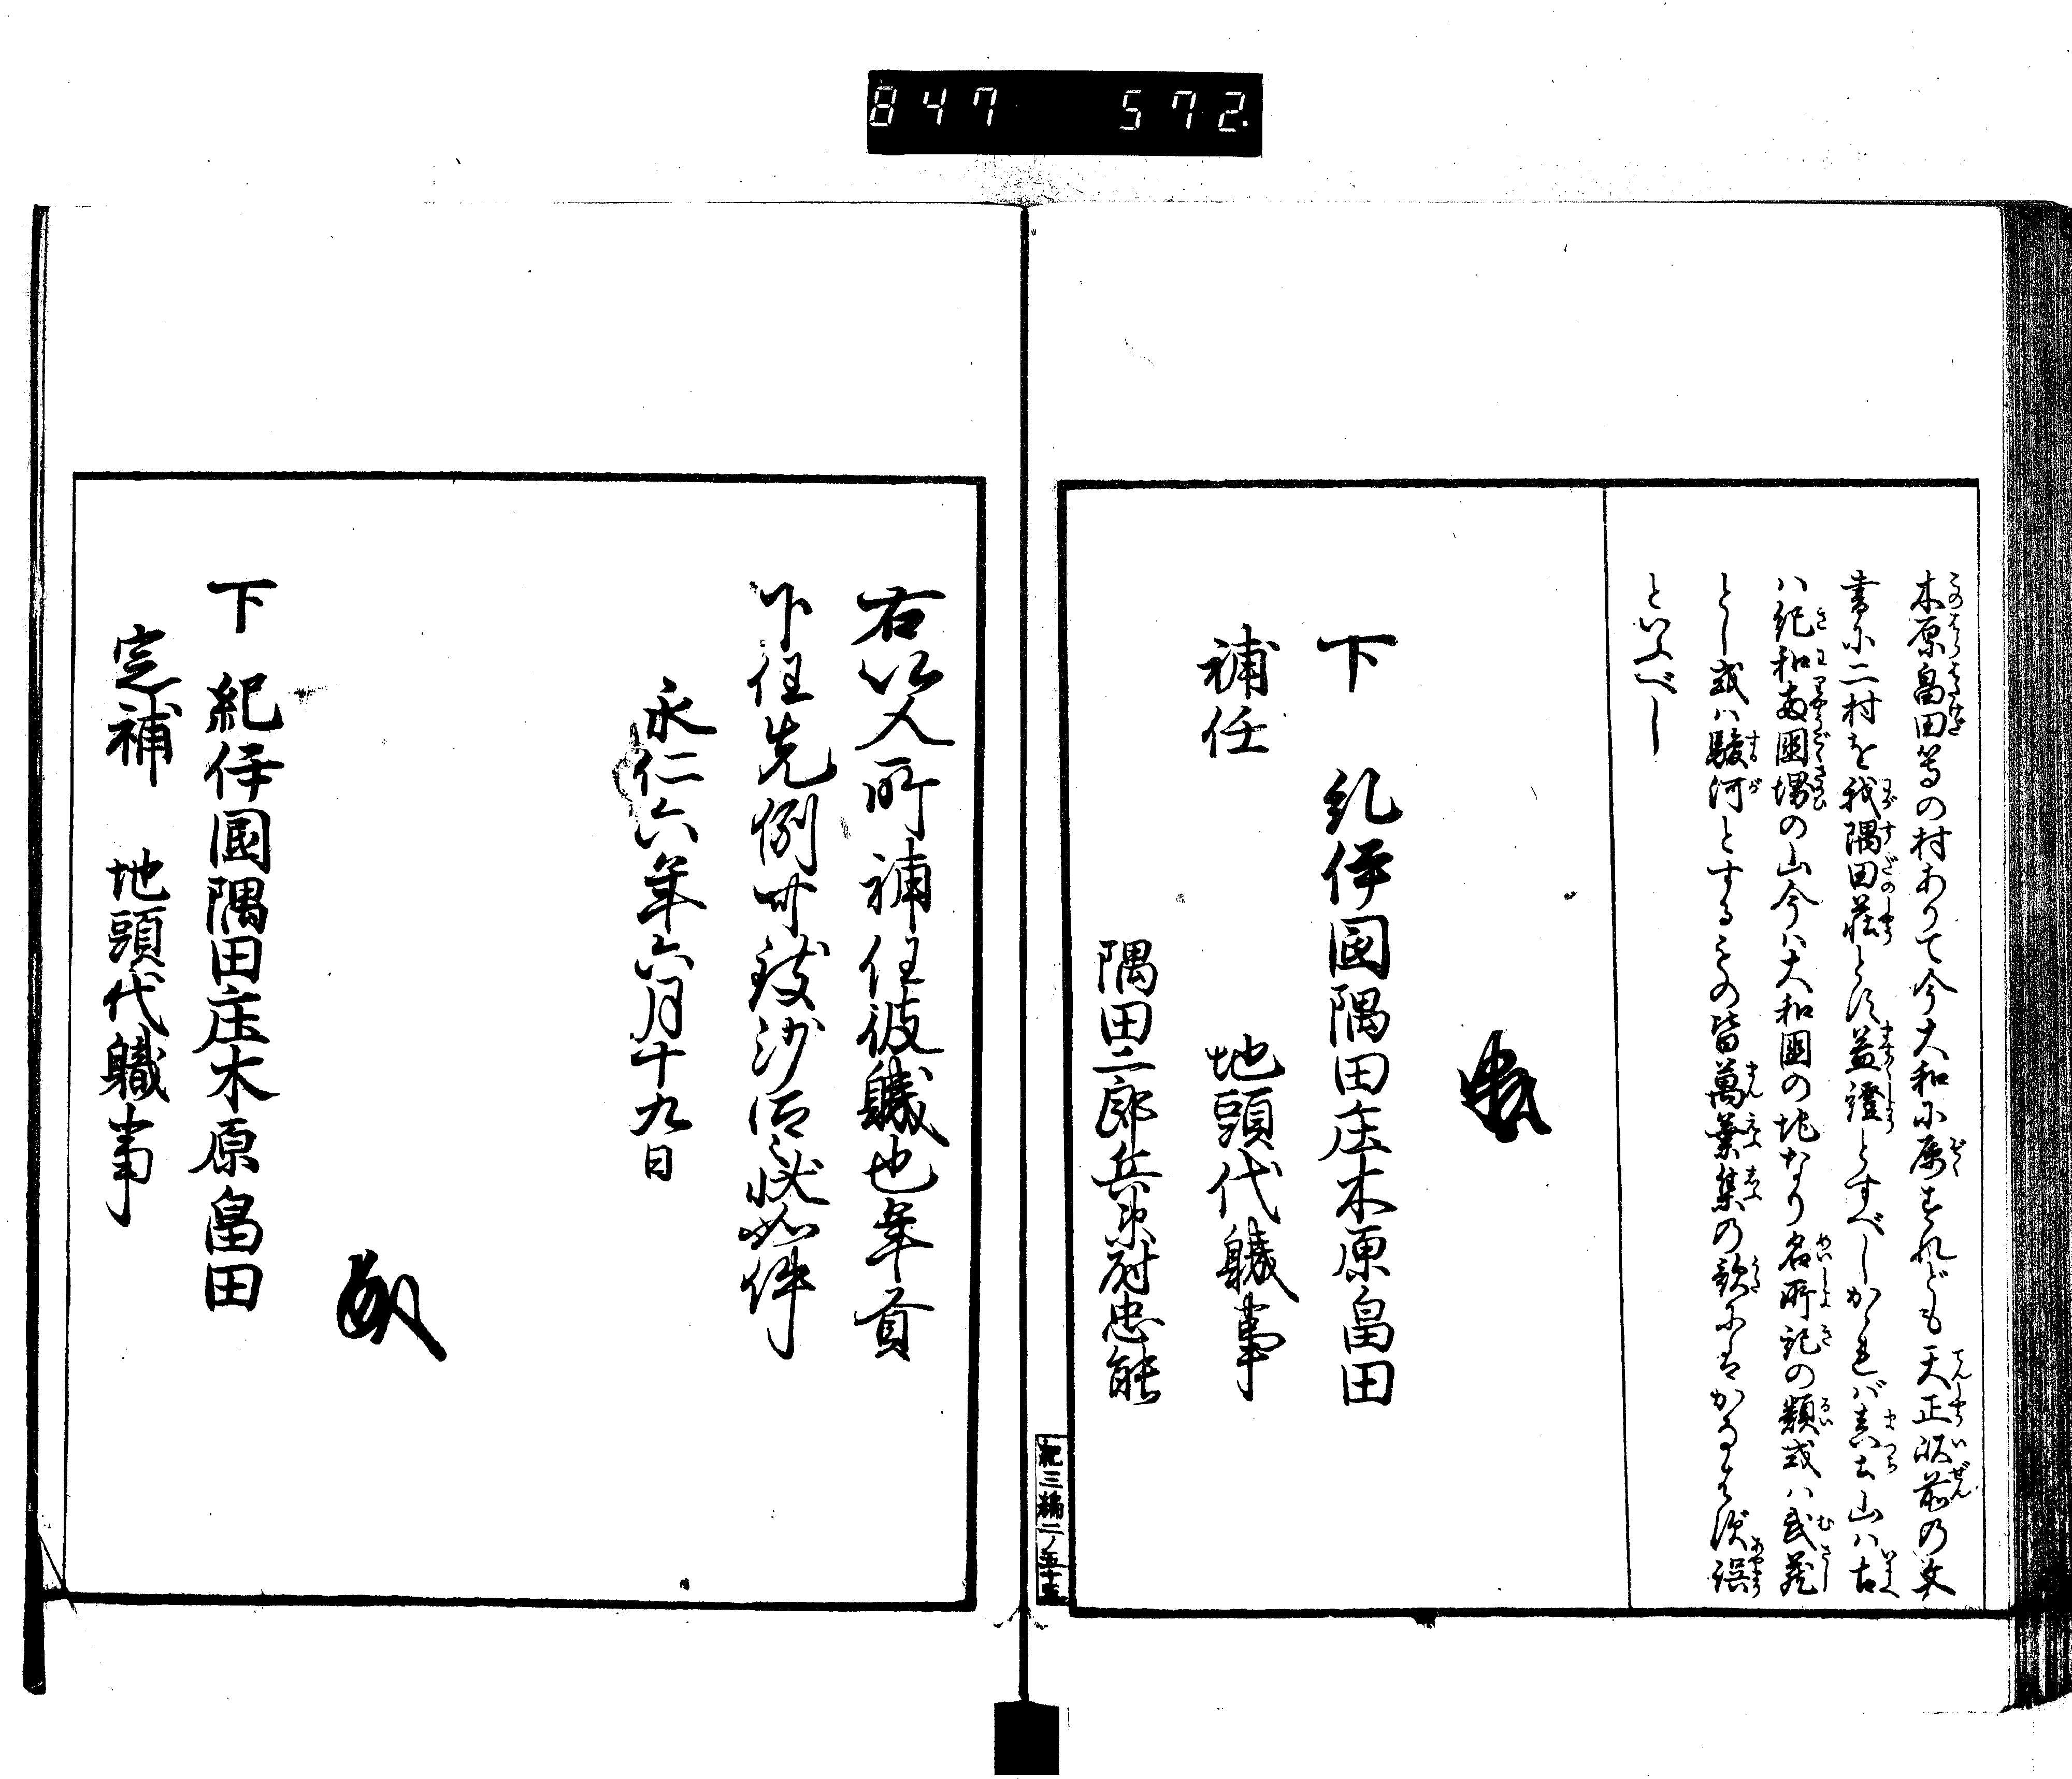 847 572.
木原畠田等の村ありて今大和に属すれども天正以前の文
書に二村を我隅田荘とす益證とすべしかゝれば真土山ハ古
ハ紀和両國堺の山今ハ大和國の地なり名所記の類或ハ武蔵
とし或ハ駿河とするもの皆萬葉集の歌にはかるよく誤
といふべし
下 紀伊國隅田庄木原畠田
補任 地頭代職事
隅田二郎兵衛尉忠能
紀三編二ノ五十五
右以人所補任彼職也年貢
以下任先例可致沙汰之状如件
永仁六年六月十九日
下 紀伊國隅田庄木原畠田
定補 地頭代職事